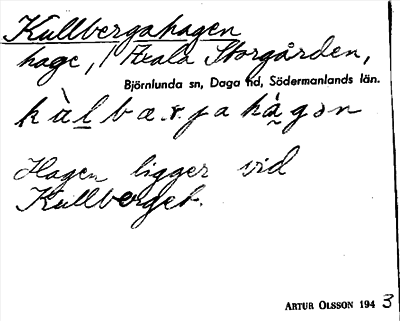 Kullbergahagen
hage, Axala Storgården,
Björnlunda sn, Daga hd, Södermanlands län.
k à l b æ . r j a h à g ə n
Hagen ligger vid
Kullberget.
ARTUR OLSSON 194 3